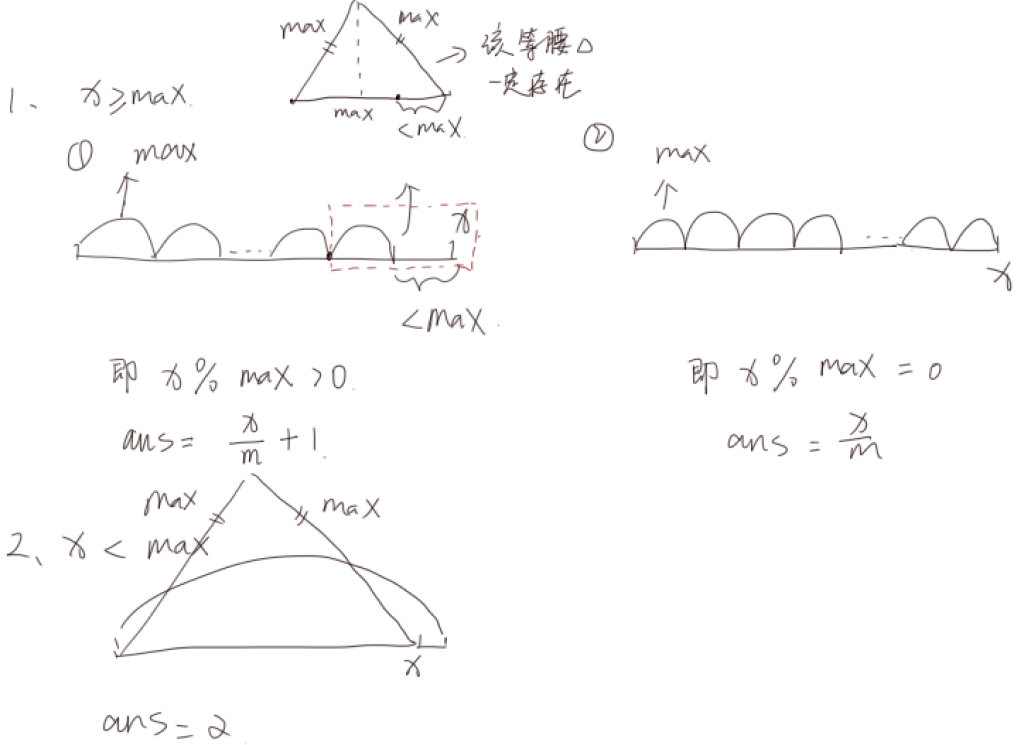 max max
→ 该等腰△
一定存在
max <max.
1、 x≥max.
① max
x
<max.
即 x % max >0.
ans = x/m + 1.
② max
x
即 x % max = 0
ans = x/m
max max
2、x < max
x
ans = 2